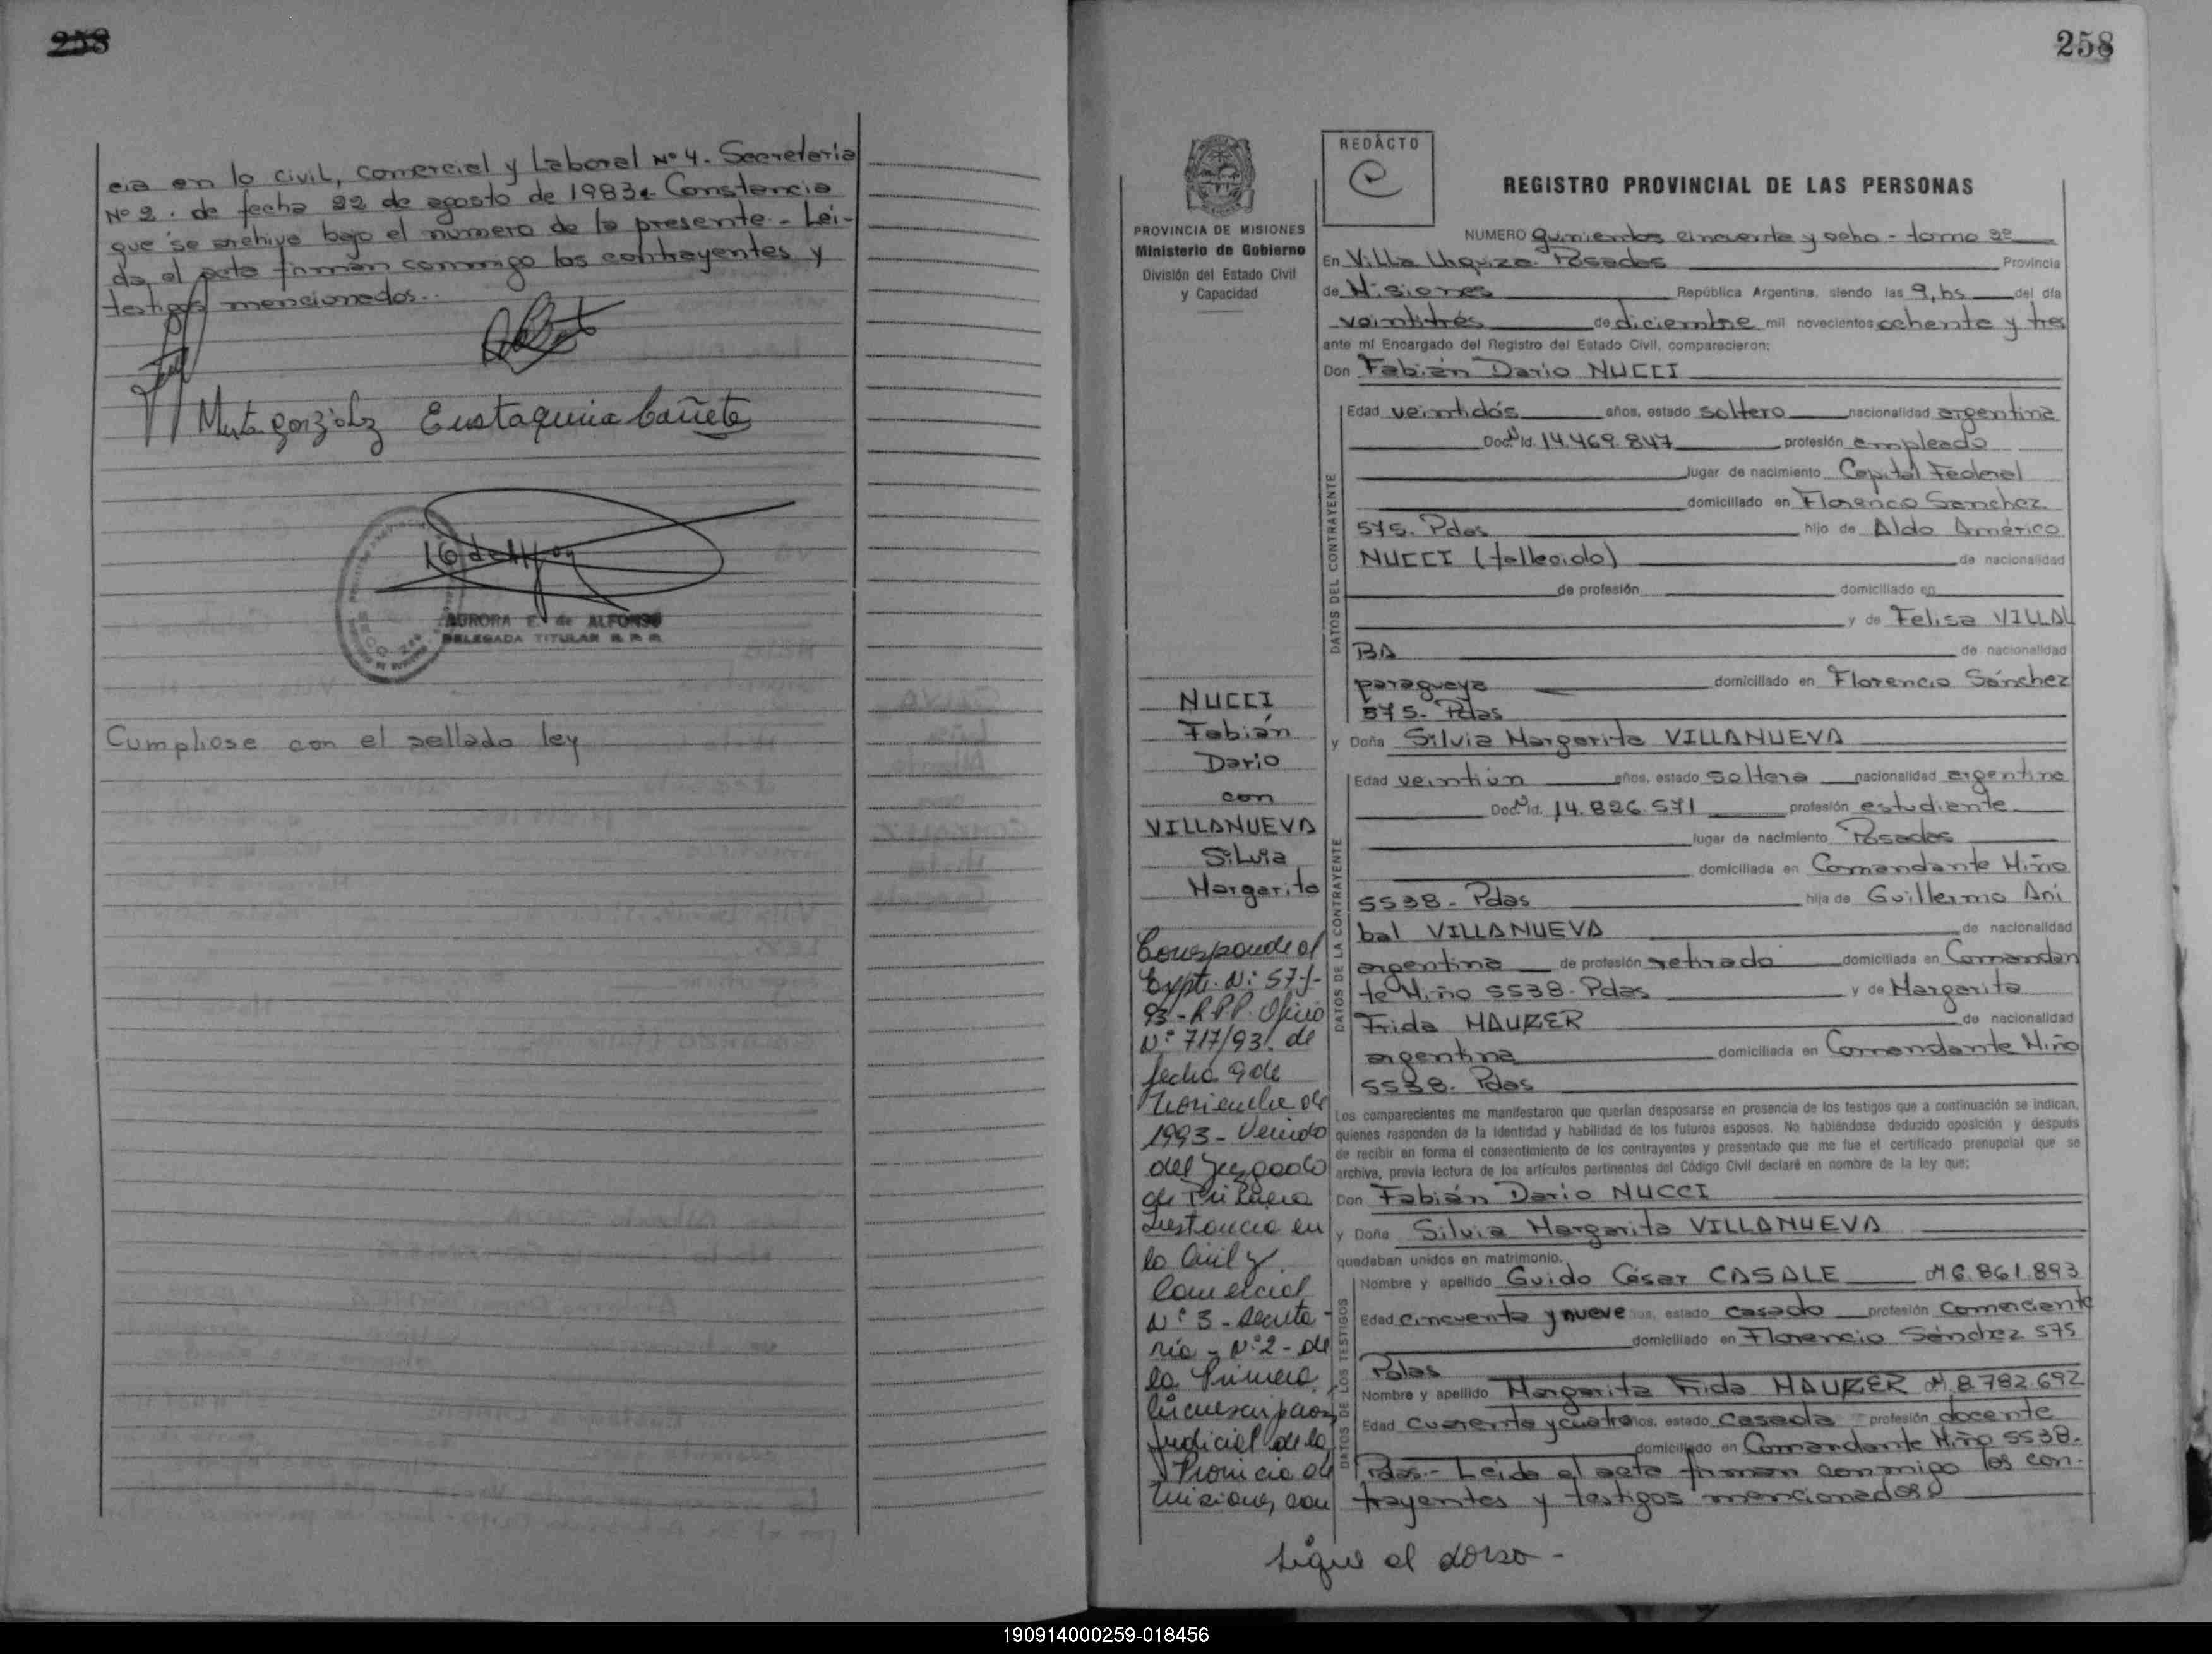 258
cia en lo civil, comercial y Laboral Nº 4. Secretaria
Nº 2. de fecha 22 de agosto de 1983. Constancia
que se archiva bajo el número de la presente.- Lei-
da el acta firman conmigo los contrayentes y
testigos mencionados.
Mirta González Eustaquia Cañete
AURORA E. de ALFONSO
DELEGADA TITULAR R. P. P.
Cumpliose con el sellado ley
258
PROVINCIA DE MISIONES
Ministerio de Gobierno
División del Estado Civil
y Capacidad
REDÁCTO
C
REGISTRO PROVINCIAL DE LAS PERSONAS
NUMERO quinientos cincuenta y ocho - tomo 2º
En Villa Urquiza. Posadas Provincia
de Misiones República Argentina, siendo las 9, hs del día
veintitrés de diciembre mil novecientos ochenta y tres
ante mí Encargado del Registro del Estado Civil, comparecieron:
Don Fabián Dario NUCCI
DATOS DEL CONTRAYENTE
Edad veintidós años, estado soltero nacionalidad argentina
Doc. Nº Id. 14.469.847 profesión empleado
lugar de nacimiento Capital Federal
domiciliado en Florencio Sanchez
575. Pdas hijo de Aldo Américo
NUCCI (fallecido) de nacionalidad
de profesión domiciliado en
y de Felisa VILLAL
BA de nacionalidad
paraguaya domiciliado en Florencio Sánchez
575- Pdas
y Doña Silvia Margarita VILLANUEVA
DATOS DE LA CONTRAYENTE
Edad veintiún años, estado soltera nacionalidad argentina
Doc. Nº Id. 14.826.571 profesión estudiante
lugar de nacimiento Posadas
domiciliada en Comandante Miño
5538- Pdas hija de Guillermo Aní
bal VILLANUEVA de nacionalidad
argentina de profesión retirado domiciliada en Comandan
te Miño 5538- Pdas y de Margarita
Frida MAURER de nacionalidad
argentina domiciliada en Comandante Miño
5538- Pdas
Los comparecientes me manifestaron que querían desposarse en presencia de los testigos que a continuación se indican,
quienes responden de la identidad y habilidad de los futuros esposos. No habiéndose deducido oposición y después
de recibir en forma el consentimiento de los contrayentes y presentado que me fue el certificado prenupcial que se
archiva, previa lectura de los artículos pertinentes del Código Civil declaré en nombre de la ley que:
Don Fabián Dario NUCCI
y Doña Silvia Margarita VILLANUEVA
quedaban unidos en matrimonio.
DATOS DE LOS TESTIGOS
Nombre y apellido Guido César CASALE M 6.861.893
Edad cincuenta y nueve años, estado casado profesión comerciante
domiciliado en Florencio Sánchez 575
Pdas
Nombre y apellido Margarita Frida MAURER M. 8.782.692
Edad cuarenta y cuatro años, estado casada profesión docente
domiciliado en Comandante Miño 5538.
Pdas.- Leida el acta firman conmigo los con-
trayentes y testigos mencionados
NUCCI
Fabián
Dario
con
VILLANUEVA
Silvia
Margarita
Corresponde al
Expte. Nº 577-
93- RPP. Oficio
Nº 717/93. de
fecha 9 de
Noviembre de
1993- Venido
del Juzgado
de Primera
Instancia en
lo Civil y
Comercial
Nº 3 - Secreta-
ría - Nº 2 - de
la Primera
Circunscripción
Judicial de la
Provincia de
Misiones, con
Sigue al dorso -
190914000259-018456